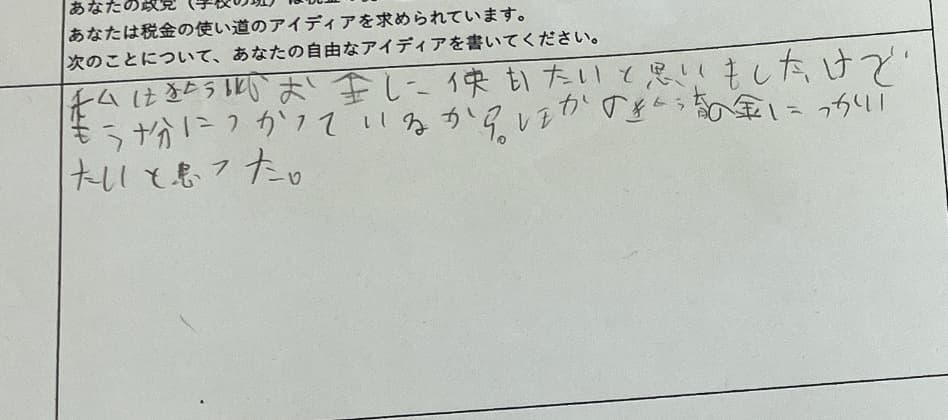 あなたの政党（学校の班）は税金の
あなたは税金の使い道のアイディアを求められています。
次のことについて、あなたの自由なアイディアを書いてください。
私はお金に使いたいと思いましたけど
もう十分につかっているから。ほかのの金につかい
たいと思った。